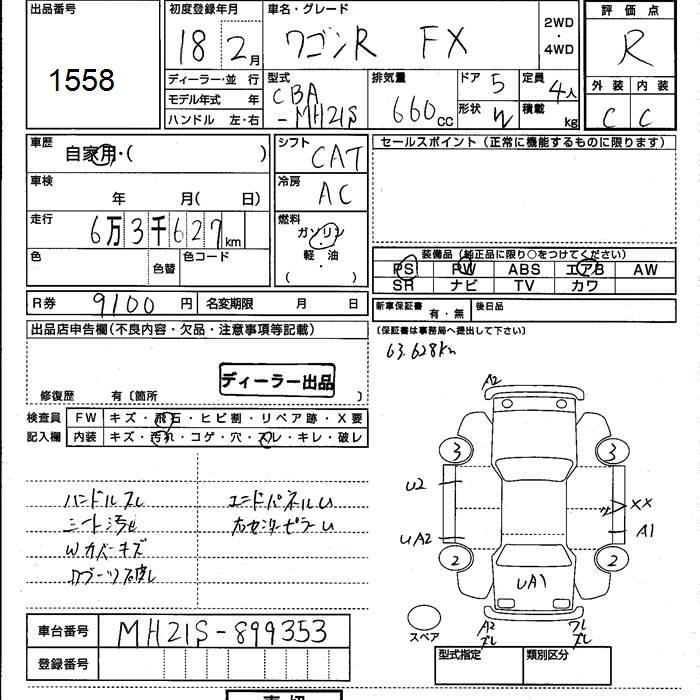 出品番号
1558
初度登録年月
18 2月
車名・グレード
ワゴンR FX
2WD・4WD
評価点
R
外装 内装
C C
ディーラー・並 行
モデル年式 年
ハンドル 左・右
型式
CBA
-MH21S
排気量
660cc
ドア 5
形状 W
定員 4人
積載 kg
車歴
自家用・( )
車検
年 月( 日)
走行
6万3千627km
色
色替
色コード
シフト
CAT
冷房
AC
燃料
ガソリン・軽油
( )
セールスポイント(正常に機能するものに限ります)
装備品(純正品に限り○をつけてください)
PS PW ABS エアB AW
SR ナビ TV カワ
R券 9100 円 名変期限 月 日
新車保証書 有・無 後日品
(保証書は事務局へ提出して下さい)
63,628km
出品店申告欄(不良内容・欠品・注意事項等記載)
ディーラー出品
修復歴 有〔箇所 〕
検査員記入欄
FW キズ・飛石・ヒビ割・リペア跡・X要
内装 キズ・汚れ・コゲ・穴・スレ・キレ・破レ
ハンドルスレ
シート汚れ
Wカバーキズ
エンドパネルU
右センターピラーU
A2
3 3
U2
XX
UA2
A1
2 2
UA1
スペア
A2
ズレ
ワレ
ズレ
車台番号 MH21S-899353
登録番号
型式指定 類別区分